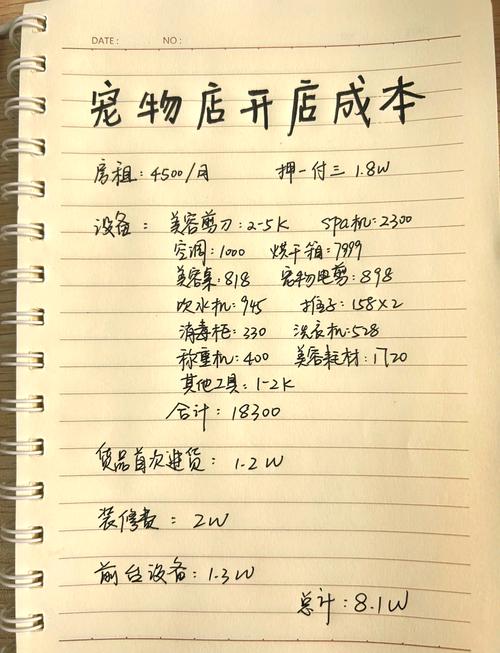 DATE: NO:
宠物店开店成本
房租:4500/月 押一付三 1.8W
设备:美容剪刀:2-5K spa机:2300
空调:1000 烘干箱:7999
美容桌:818 宠物电剪:898
吹水机:945 推子:158×2
消毒柜:330 洗衣机:528
称重机:400 美容耗材:1720
其他工具:1-2K
合计:18300
货品首次进货:1.2W
装修费:2W
前台设备:1.3W
总计:8.1W